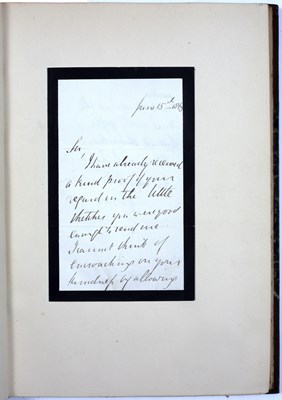 June 15th
Sir,
I have already received
a kind proof of your
regard in the little
sketches you were good
enough to send me
I cannot think of
encroaching on your
kindness by allowing